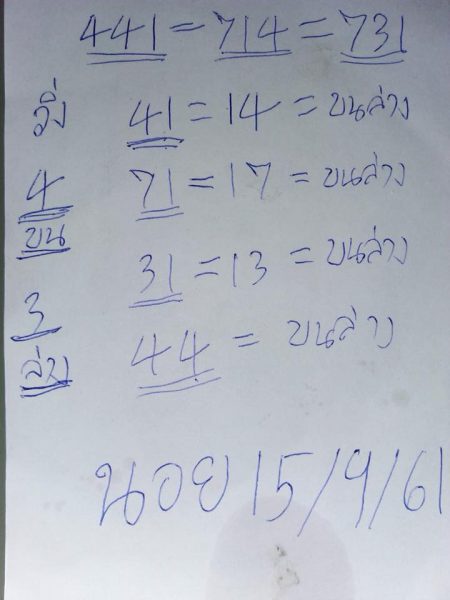 441 = 714 = 731
วิ่ง 41 = 14 = บนล่าง
4 71 = 17 = บนล่าง
บน
31 = 13 = บนล่าง
3
ล่าง 44 = บนล่าง
นอย 15/9/61